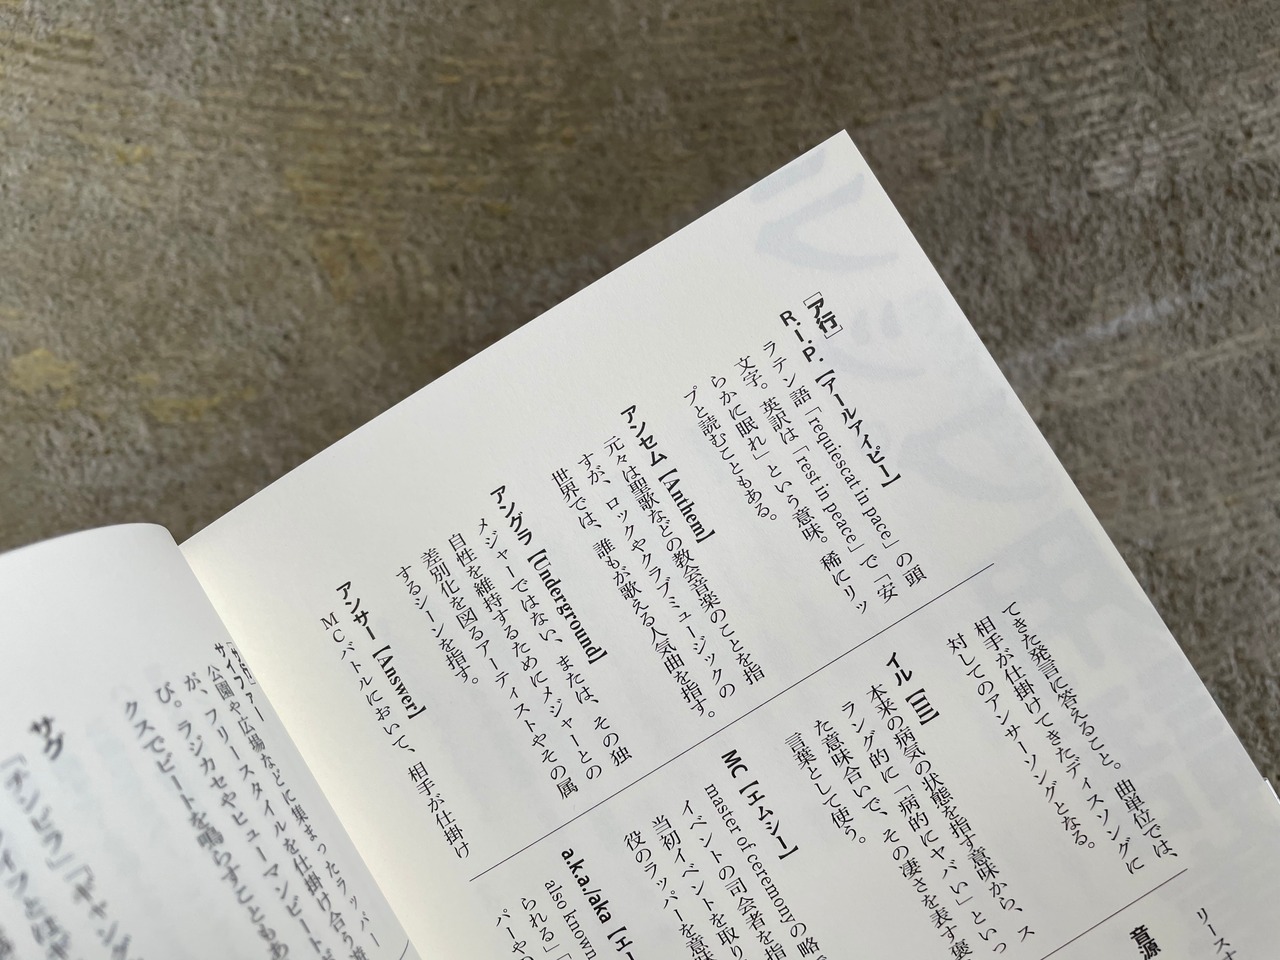 ［ア行］
R.I.P.【アールアイピー】
ラテン語「requiescat in pace」の頭
文字。英訳は「rest in peace」で「安
らかに眠れ」という意味。稀にリッ
プと読むこともある。
アンセム【Anthem】
元々は聖歌などの教会音楽のことを指
すが、ロックやクラブミュージックの
世界では、誰もが歌える人気曲を指す。
アングラ【Underground】
メジャーではない、または、その独
自性を維持するためにメジャーとの
差別化を図るアーティストやその属
するシーンを指す。
アンサー【Answer】
MCバトルにおいて、相手が仕掛け
てきた発言に答えること。曲単位では、
相手が仕掛けてきたディスソングに
対してのアンサーソングとなる。
イル【Ill】
本来の病気の状態を指す意味から、ス
ラング的に「病的にヤバい」といっ
た意味合いで、その凄さを表す褒
言葉として使う。
MC【エムシー】
master of ceremonyの略
イベントの司会者を指
当初イベントを取り
役のラッパーを意味
a.k.a./aka【エー
also known
られる」
パーや
音源
リースす
サイファー
公園や広場などに集まったラッパー
が、フリースタイルを仕掛け合う遊
び。ラジカセやヒューマンビートボ
クスでビートを鳴らすこともあ
サグ
「チンピラ」「ギャング